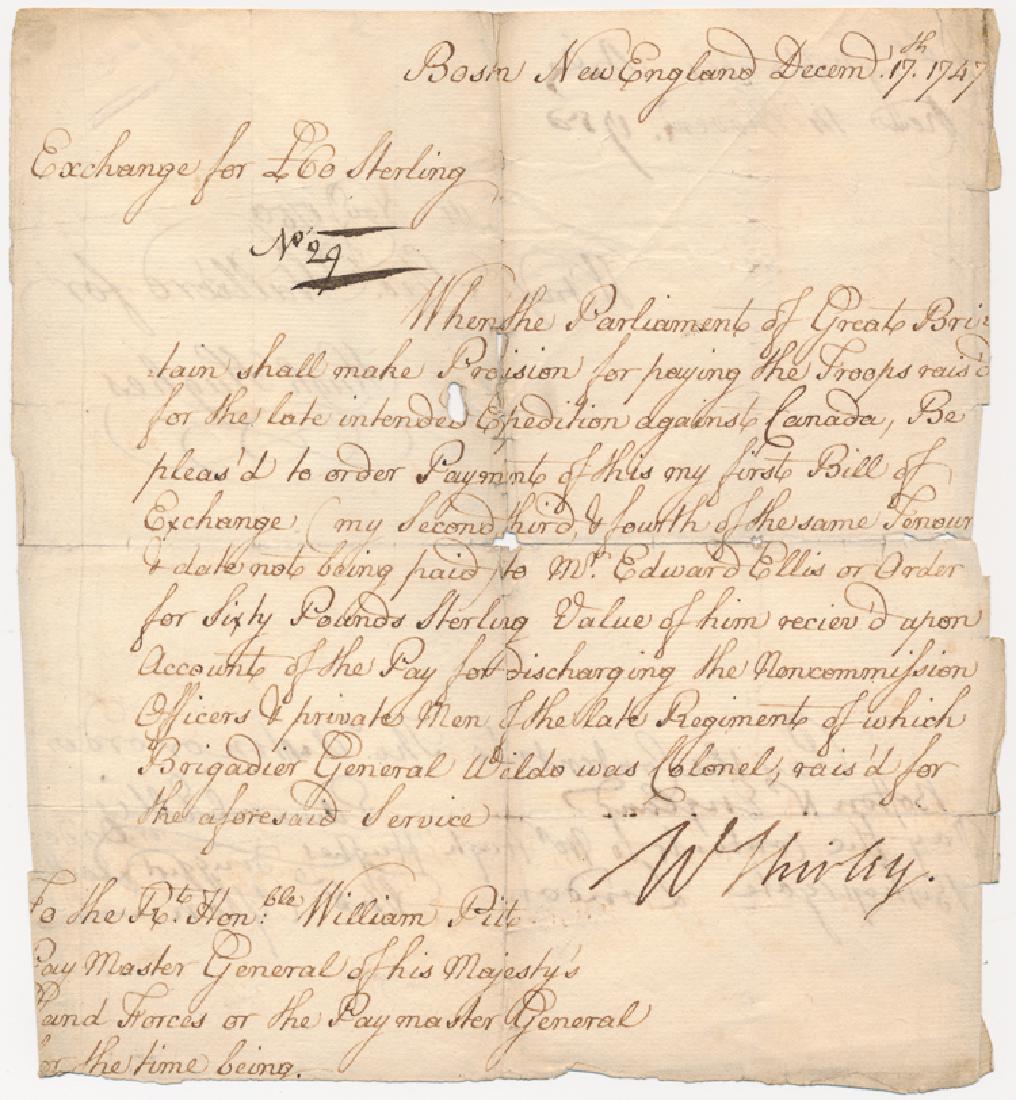 Bostn New England Decemd. 17.th 1747
Exchange for £60 Sterling
No. 29
When the Parliament of Great Bri-
tain shall make Proision for paying the Troops rais'd
for the late intended Expedition against Canada, Be
pleas'd to order Paymnt of this my first Bill of
Exchange (my Second third, & fourth of the same Tenour
& date not being paid) to Mr. Edward Ellis or Order
for Sixty Pounds Sterling Value of him reciev'd upon
Account of the Pay for discharging the Noncommission
Officers & private Men of the late Regiment of which
Brigadier General Waldo was Colonel, rais'd for
the aforesaid Service
W Shirley.
To the Rt. Hon:ble William Pitt
Pay Master General of his Majesty's
Land Forces or the Paymaster General
for the time being.